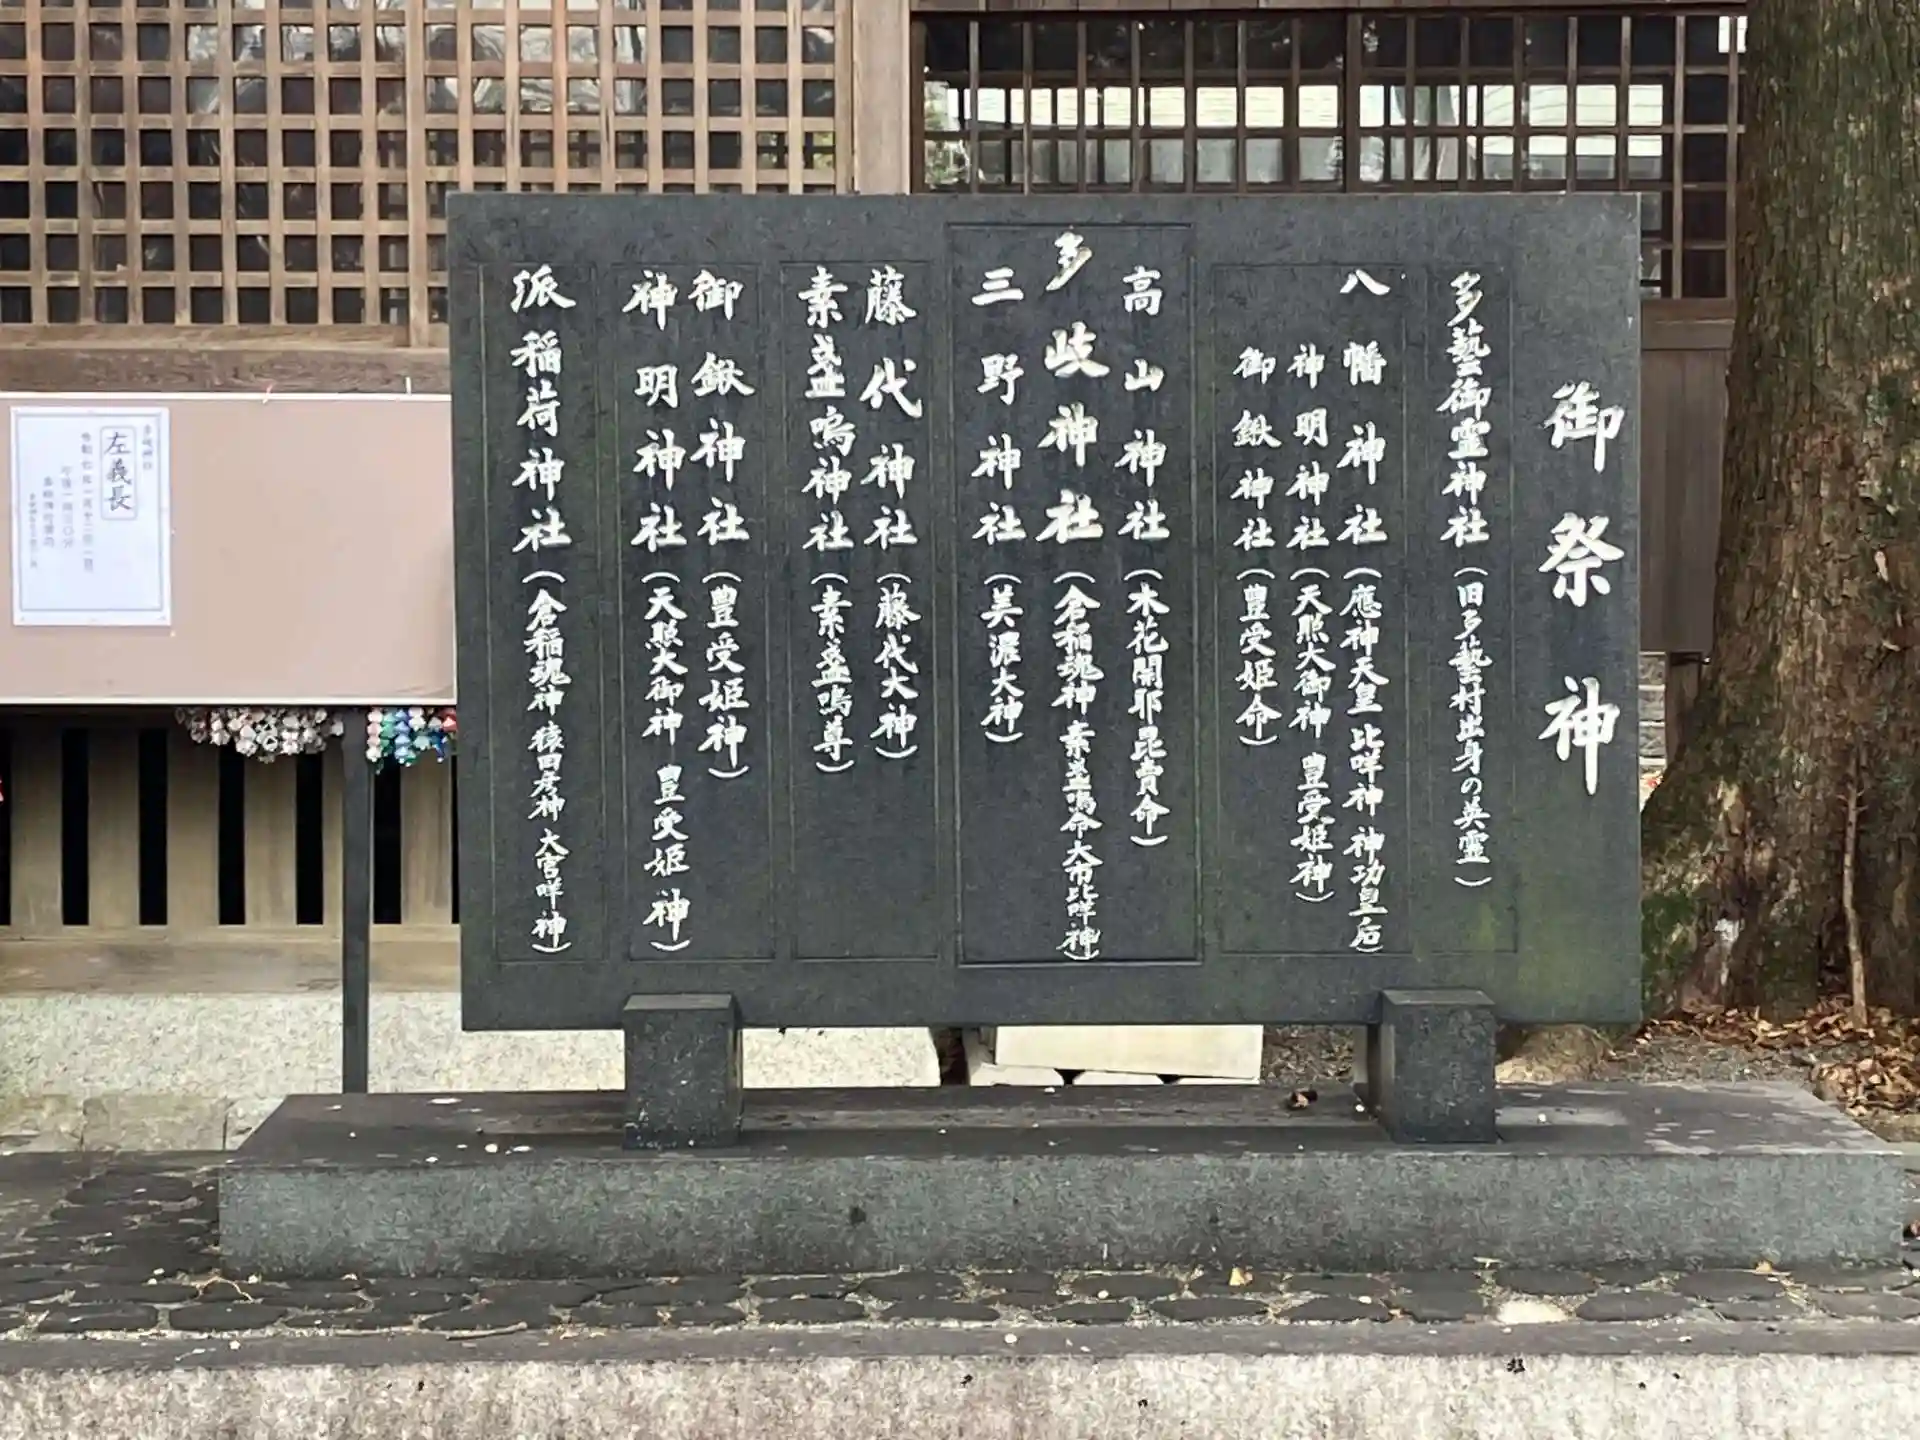 御祭神
多藝御霊神社(旧多藝村出身の英霊)
八幡神社(應神天皇 比咩神 神功皇后)
神明神社(天照大御神 豊受姫神)
御鍬神社(豊受姫命)
高山神社(木花開耶毘賣命)
多岐神社(倉稲魂神 素盞嗚命 大市比咩神)
三野神社(美濃大神)
藤代神社(藤代大神)
素盞嗚神社(素盞嗚尊)
御鍬神社(豊受姫神)
神明神社(天照大御神 豊受姫神)
派稲荷神社(倉稲魂神 猿田彦神 大宮咩神)
左義長